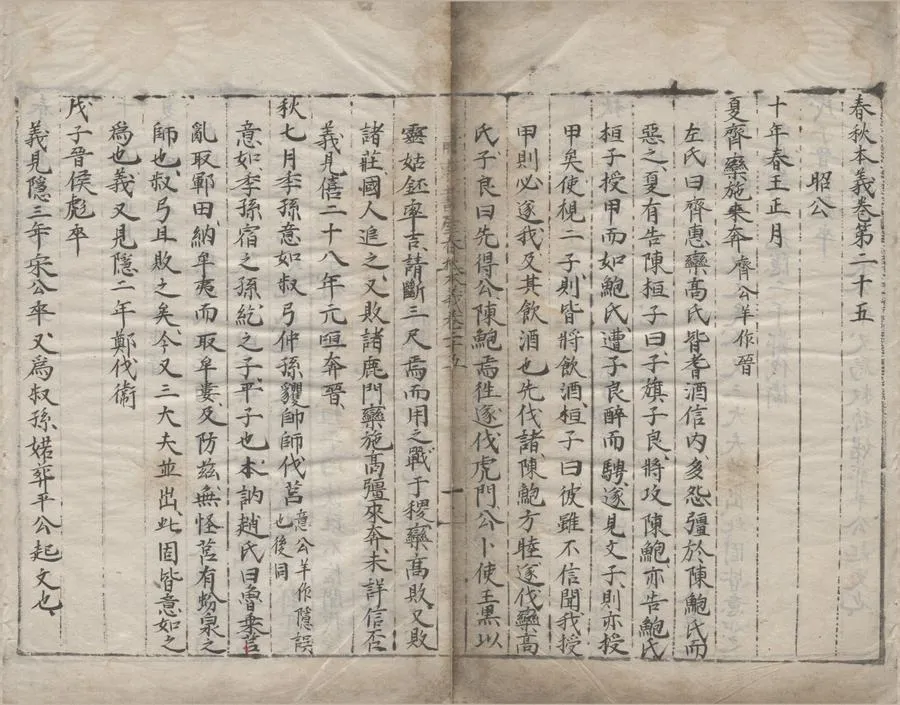 春秋本義卷第二十五
昭公
十年春王正月
夏齊欒施來奔 齊公羊作晉
左氏曰齊惠欒高氏皆耆酒信内多怨彊於陳鮑氏而
惡之夏有告陳桓子曰子旗子良將攻陳鮑亦告鮑氏
桓子授甲而如鮑氏遭子良醉而騁遂見文子則亦授
甲矣使視二子則皆將飲酒桓子曰彼雖不信聞我授
甲則必逐我及其飲酒也先伐諸陳鮑方睦遂伐欒高
氏子良曰先得公陳鮑焉往遂伐虎門公卜使王黒以
靈姑銔率吉請斷三尺焉而用之戰于稷欒高敗又敗
諸莊國人追之又敗諸鹿門欒施高彊來奔未詳信否
義見僖二十八年元咺奔晉
秋七月季孫意如叔弓仲孫貜帥師伐莒 意公羊作隱誤也後同
意如季孫宿之孫紇之子平子也本訥趙氏曰魯乗莒
亂取鄆田納牟夷而取牟婁及防茲無怪莒有蚡泉之
師也叔弓且敗之矣今又三大夫並出此固皆意如之
爲也義又見隱二年鄭伐衞
戊子晉侯彪卒
義見隱三年宋公卒又爲叔孫婼葬平公起文也